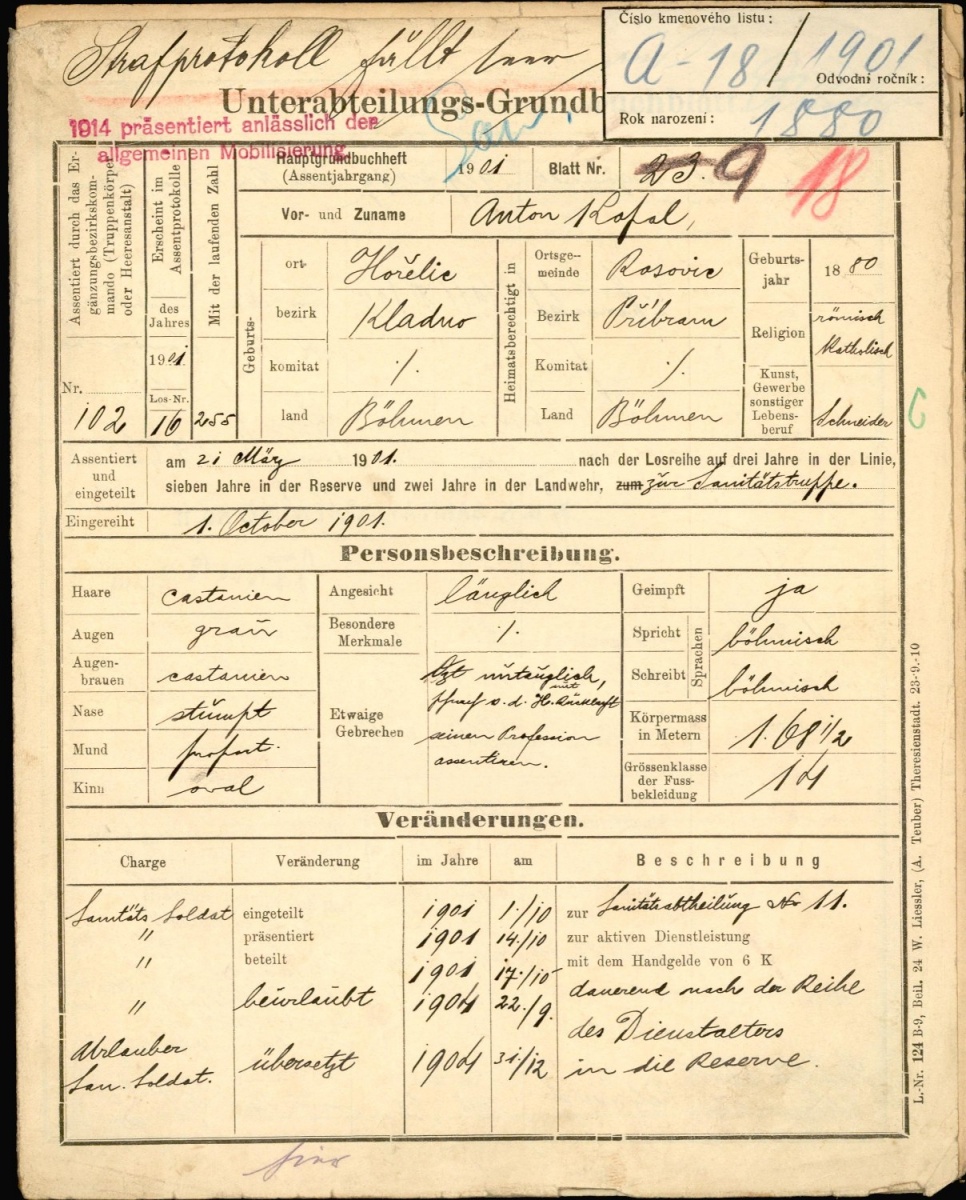 Strafprotokoll fällt leer
Číslo kmenového listu:
A-18/1901
Odvodní ročník:
Rok narození: 1880
Unterabteilungs-Grundb
San.
1914 präsentiert anlässlich der
allgemeinen Mobilisierung
Hauptgrundbuchheft
(Assentjahrgang)
1901
Blatt Nr. 23. 9 18
Vor- und Zuname Anton Kopal,
Assentiert durch das Er-
gänzungsbezirkskom-
mando (Truppenkörper
oder Heeresanstalt)
Nr.
102
Erscheint im
Assentprotokolle
des
Jahres
1901
Los-Nr.
16
Mit der laufenden Zahl
255
Geburts-
ort- Hořelic
bezirk Kladno
komitat ./.
land Böhmen
Heimatsberechtigt in
Ortsge-
meinde Rosovic
Bezirk Příbram
Komitat ./.
Land Böhmen
Geburts-
jahr 1880
Religion römisch
katholisch
Kunst,
Gewerbe
sonstiger
Lebens-
beruf Schneider
C
Assentiert
und
eingeteilt
am 21 März 1901. nach der Losreihe auf drei Jahre in der Linie,
sieben Jahre in der Reserve und zwei Jahre in der Landwehr, zum zur Sanitätstruppe.
Eingereiht 1. October 1901.
Personsbeschreibung.
Haare castanien
Augen grau
Augen-
brauen castanien
Nase stumpf
Mund proport.
Kinn oval
Angesicht länglich
Besondere
Merkmale ./.
Etwaige
Gebrechen
untauglich,
mit
seinen Profession
assentiren.
Geimpft ja
Sprachen
Spricht böhmisch
Schreibt böhmisch
Körpermass
in Metern 1.68 1/2
Grössenklasse
der Fuss-
bekleidung 14
Veränderungen.
Charge Veränderung im Jahre am Beschreibung
Sanitäts Soldat eingeteilt 1901 1./10 zur Sanitätsabtheilung Nr 11.
" präsentiert 1901 14./10 zur aktiven Dienstleistung
" beteilt 1901 17./10 mit dem Handgelde von 6 K
" beurlaubt 1904 22./9. dauernd nach der Reihe
des Dienstalters
Urlauber
San. Soldat. übersetzt 1904 31./12 in die Reserve.
L.-Nr. 124 B-9, Beil. 24 W. Liessler, (A. Teuber) Theresienstadt. 23.-9.-10